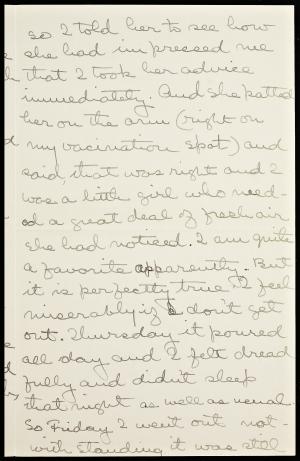 so I told her to see how
she had impressed me
that I took her advice
immediately. And she patted
her on the arm (right on
my vacination spot) and
said, that was right and I
was a little girl who need-
ed a great deal of fresh air
she had noticed. I am quite
a favorite apparently. But
it is perfectly true I feel
miserably if I don't get
out. Thursday it poured
all day and I felt dread
fully and didn't sleep
that night as well as usual.
So Friday I went out not-
withstanding it was still